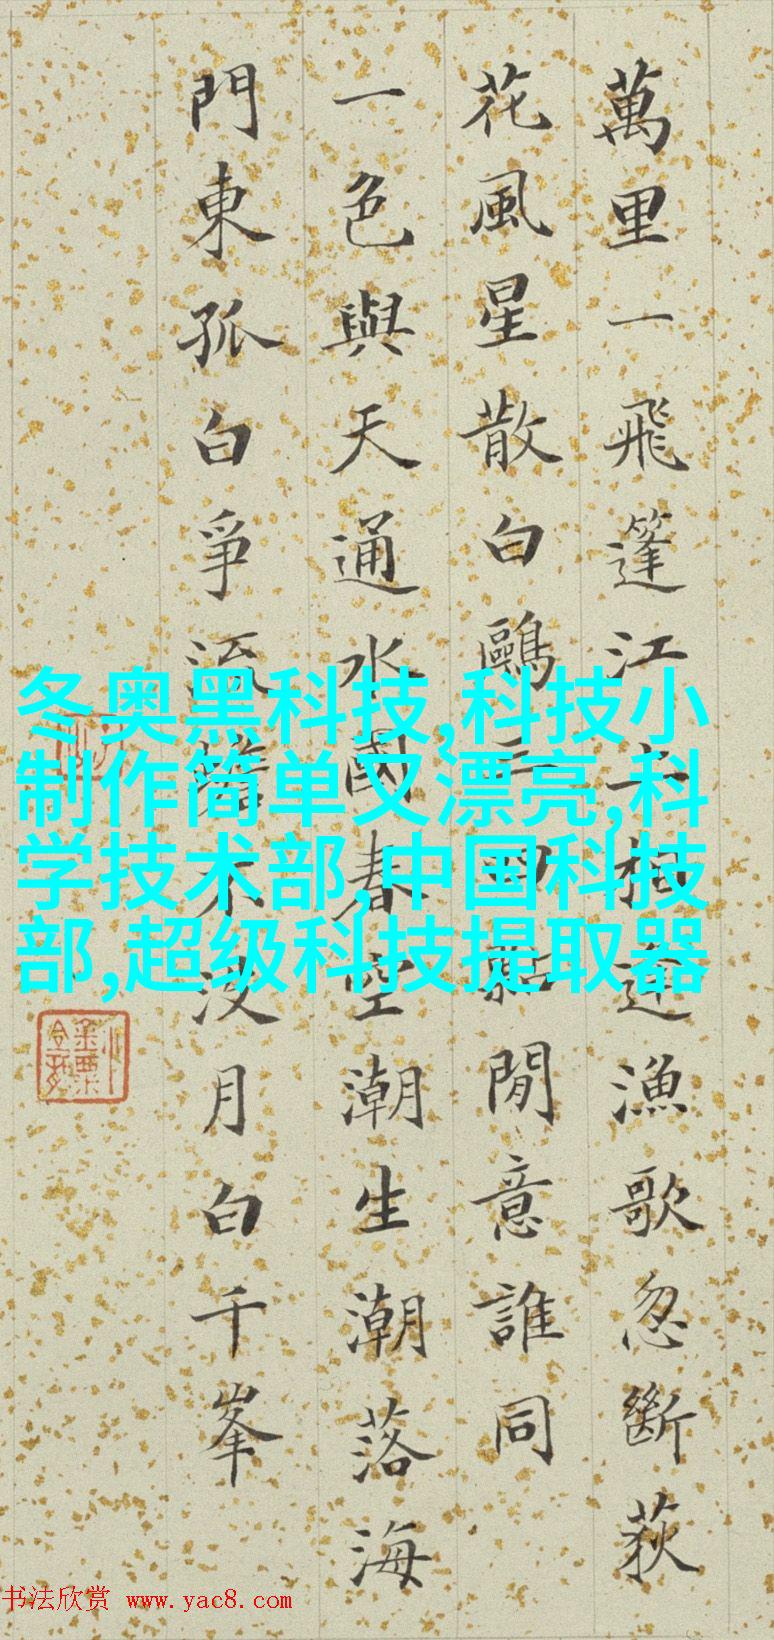 萬里一飛篷江上相逢漁歌忽斷荻
花風星散白鷗三四點閒意誰同
一色與天通水國春空潮生潮落海
門東孤白爭流蟾不沒月白千峯
冬奥黑科技,科技小
制作简单又漂亮,科
学技术部,中国科技
部,超级科技提取器
书法欣赏 www.yac8.com